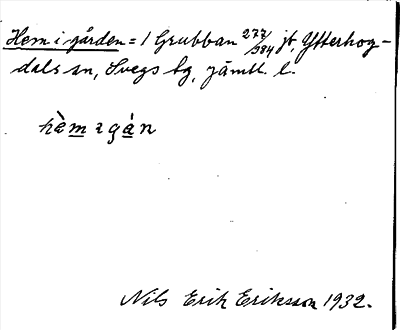 Hem i gården = 1 Grubban 277/984 jt, Ytterhog-
dals sn, Svegs tg, Jämtl. l.
hèm ɪ gá̱n
Nils Erik Eriksson 1932.